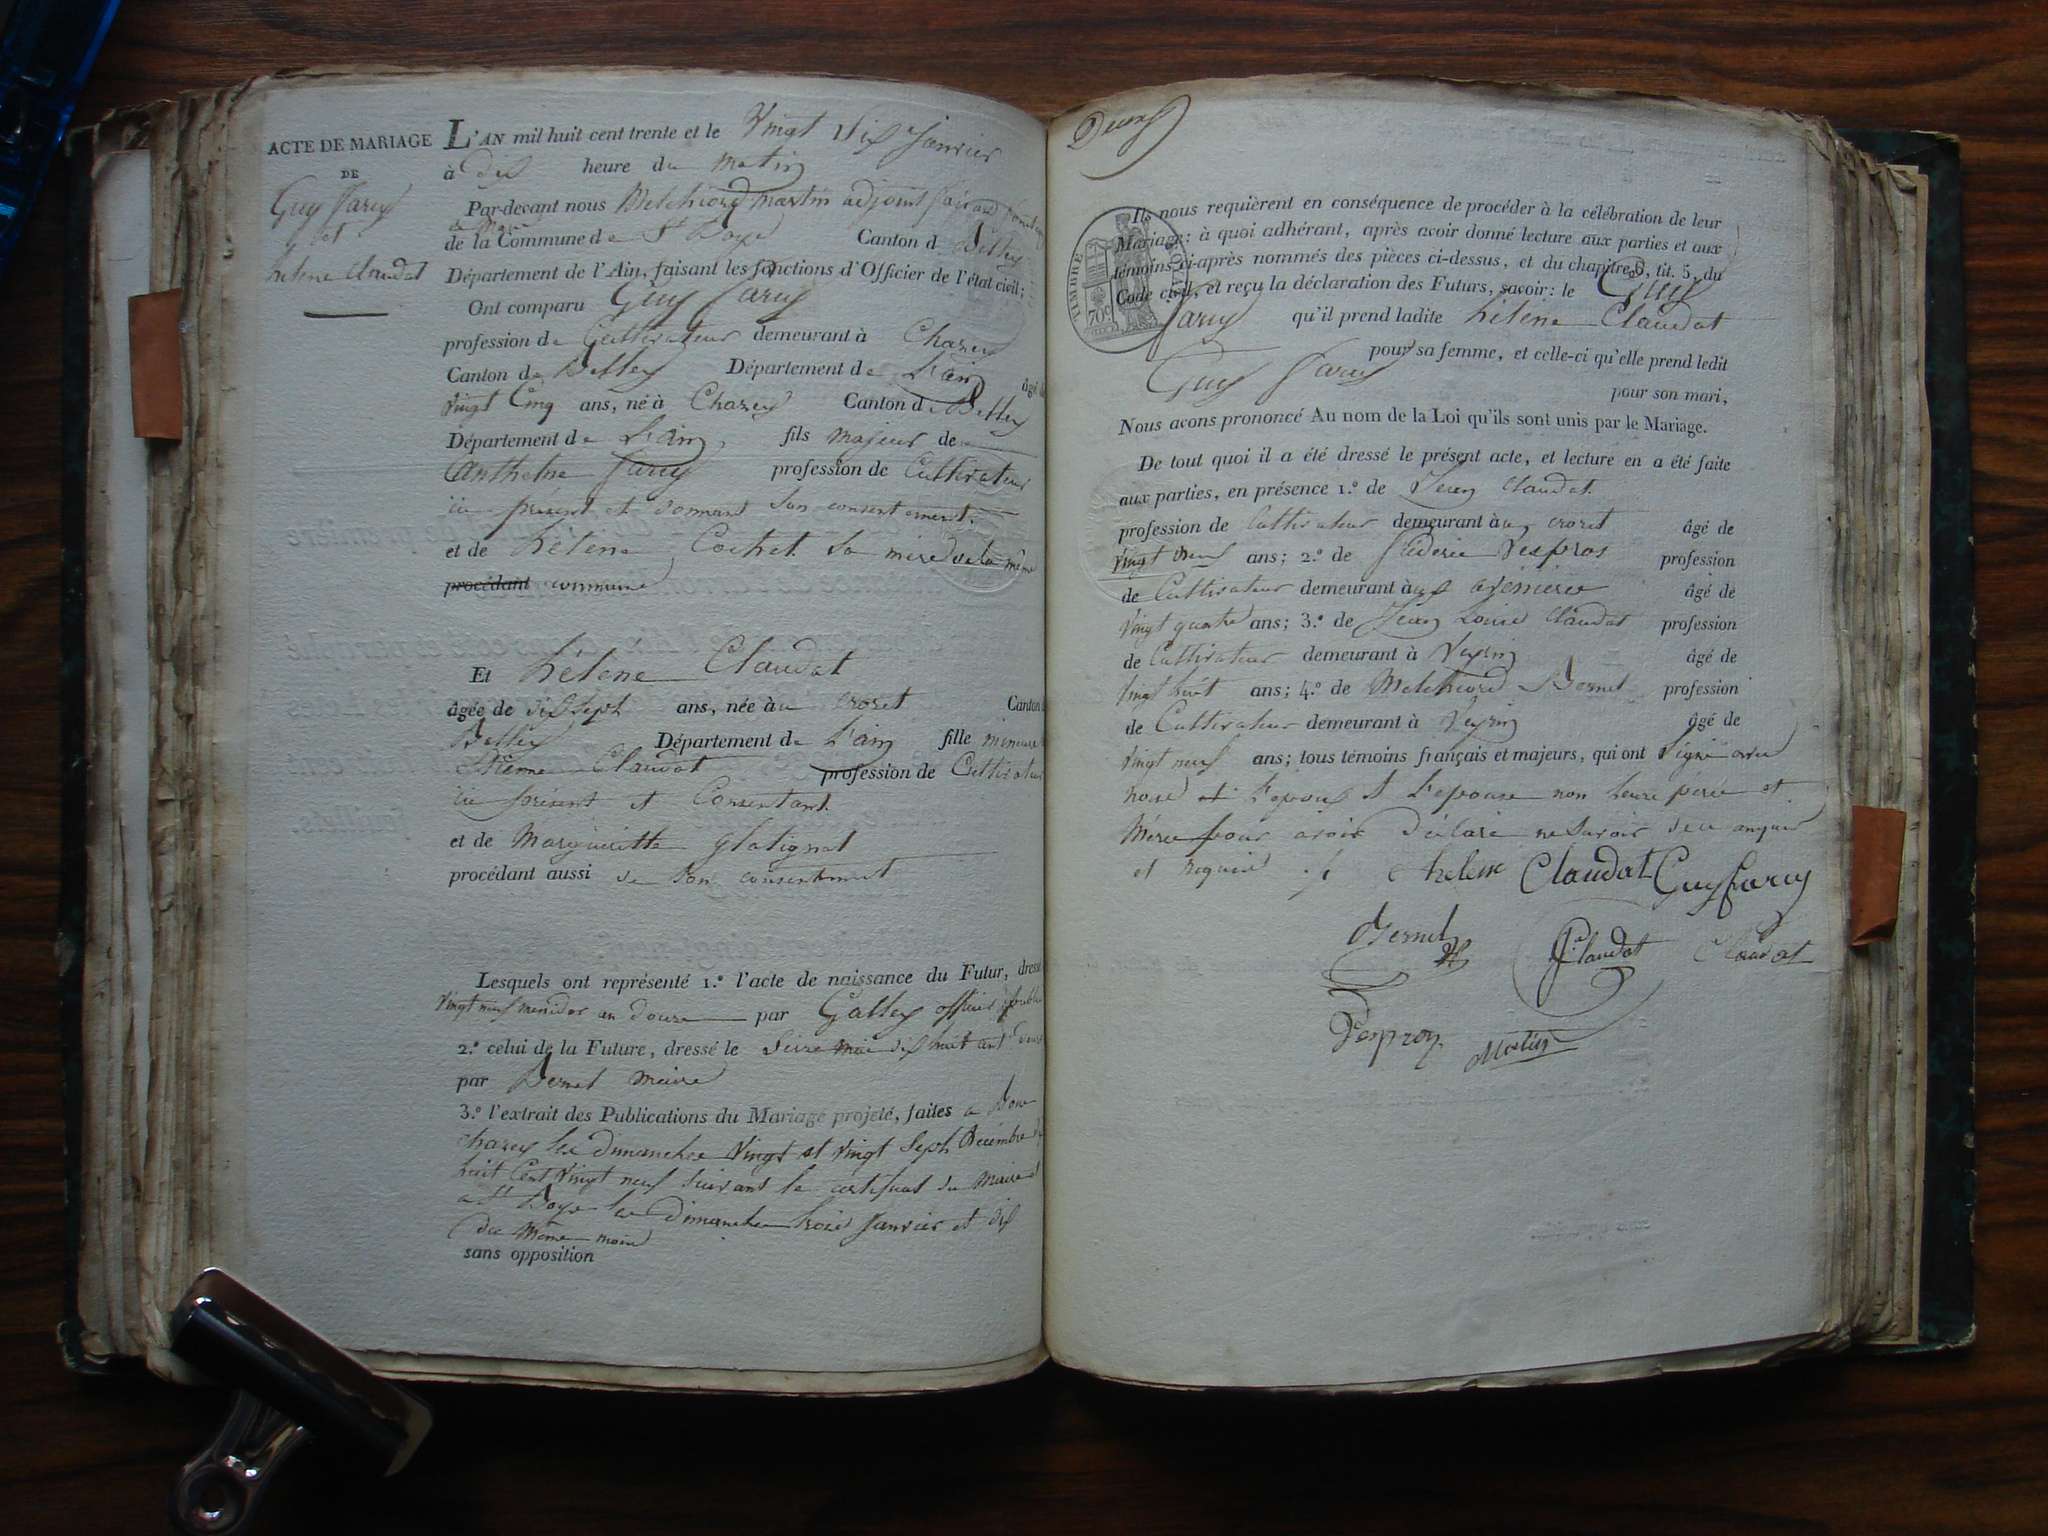 ACTE DE MARIAGE
DE
Guy Jarcy
et
hélène Claudat
L'AN mil huit cent trente et le vingt six Janvier
à dix heure du matin
Par-devant nous Melchiord Martin adjoint faisant
de maire
de la Commune de St Boye Canton de Belley
Département de l'Ain, faisant les fonctions d'Officier de l'état civil;
Ont comparu Guy Jarcy
profession de Cultivateur demeurant à Chazey
Canton de Belley Département de L'ain âgé de
vingt Cinq ans, né à Chazey Canton de Belley
Département de L'ain, fils majeur de
Anthelme Jarcy profession de Cultivateur
ici présent et donnant Son consentement.
et de hélène Cochet Sa mère de la même
procédant commune
Et hélène Claudat
âgée de dix Sept ans, née à au crozet Canton
Belley Département de L'ain fille mineure
Claudat profession de Cultivateur
ici présent et Consentant.
et de Marguerittte glatignat
procédant aussi de Son consentement
Lesquels ont représenté 1.º l'acte de naissance du Futur, dressé
vingt neuf messidor an douze par Galley officier public
2.º celui de la Future, dressé le seize mai dix huit cent douze
par Bernet maire
3.º l'extrait des Publications du Mariage projeté, faites a
chazey les dimanches vingt et vingt Sept Décembre
huit Cent vingt neuf suivant le certificat du Maire et
a St Boye les dimanches trois Janvier et dix
du même mois
sans opposition
Deux
TIMBRE ROYAL
70 c
Ils nous requièrent en conséquence de procéder à la célébration de leur
Mariage: à quoi adhérant, après avoir donné lecture aux parties et aux
témoins ci-après nommés des pièces ci-dessus, et du chapitre 6, tit. 5, du
Code civil, et reçu la déclaration des Futurs, savoir: le Guy
Jarcy qu'il prend ladite hélène Claudat
pour sa femme, et celle-ci qu'elle prend ledit
Guy Jarcy
pour son mari,
Nous avons prononcé Au nom de la Loi qu'ils sont unis par le Mariage.
De tout quoi il a été dressé le présent acte, et lecture en a été faite
aux parties, en présence 1.º de Jean Claudat
profession de Cultivateur demeurant à au crozet âgé de
vingt neuf ans; 2.º de fréderic Despros profession
de Cultivateur demeurant à aux avenieres âgé de
vingt quatre ans; 3.º de Jean Louis Claudat profession
de Cultivateur demeurant à Veyrin âgé de
vingt huit ans; 4.º de Melchiord Bernet profession
de Cultivateur demeurant à Veyrin âgé de
vingt neuf ans; tous témoins français et majeurs, qui ont Signé avec
nous et L'epoux et L'epouse non leurs père et
Mère pour avoir déclaré ne Savoir de ce enquis
et requis
helene Claudat Guy Jarcy
Bernet
J Claudat Claudat
Despros Martin